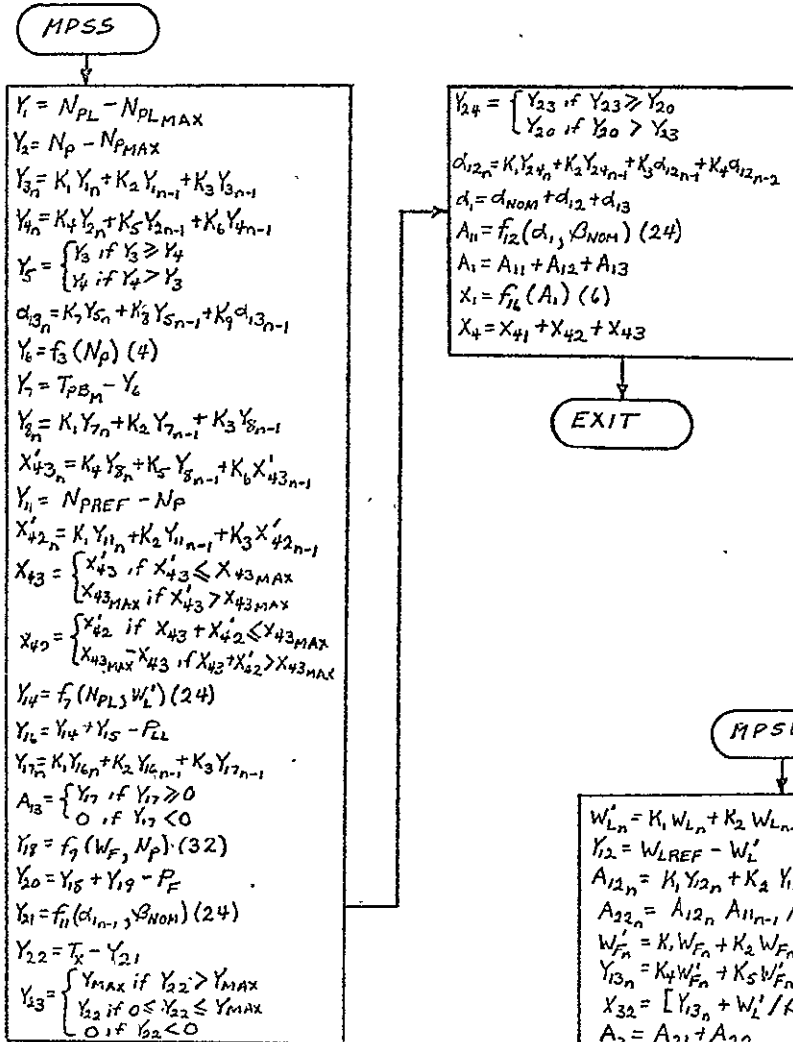 MPSS
Y₁ = N_PL − N_PL_MAX
Y₂ = N_P − N_P_MAX
Y₃ₙ = K₁Y₁ₙ + K₂Y₁ₙ₋₁ + K₃Y₃ₙ₋₁
Y₄ₙ = K₄Y₂ₙ + K₅Y₂ₙ₋₁ + K₆Y₄ₙ₋₁
Y₅ = { Y₃ if Y₃ ≥ Y₄
Y₄ if Y₄ > Y₃
α₁₃ₙ = K₇Y₅ₙ + K₈Y₅ₙ₋₁ + K₉α₁₃ₙ₋₁
Y₆ = f₃(N_P) (4)
Y₇ = T_PB_M − Y₆
Y₈ₙ = K₁Y₇ₙ + K₂Y₇ₙ₋₁ + K₃Y₈ₙ₋₁
X′₄₃ₙ = K₄Y₈ₙ + K₅Y₈ₙ₋₁ + K₆X′₄₃ₙ₋₁
Y₁₁ = N_PREF − N_P
X′₄₂ₙ = K₁Y₁₁ₙ + K₂Y₁₁ₙ₋₁ + K₃X′₄₂ₙ₋₁
X₄₃ = { X′₄₃ if X′₄₃ ≤ X₄₃_MAX
X₄₃_MAX if X′₄₃ > X₄₃_MAX
X₄₂ = { X′₄₂ if X₄₃ + X′₄₂ ≤ X₄₃_MAX
X₄₃_MAX − X₄₃ if X₄₃ + X′₄₂ > X₄₃_MAX
Y₁₄ = f₇(N_PL, W_L′) (24)
Y₁₆ = Y₁₄ + Y₁₅ − P_LL
Y₁₇ₙ = K₁Y₁₆ₙ + K₂Y₁₆ₙ₋₁ + K₃Y₁₇ₙ₋₁
A₁₃ = { Y₁₇ if Y₁₇ ≥ 0
0 if Y₁₇ < 0
Y₁₈ = f₉(W_F, N_P) (32)
Y₂₀ = Y₁₈ + Y₁₉ − P_F
Y₂₁ = f₁₁(α₁ₙ₋₁, β_NOM) (24)
Y₂₂ = T_X − Y₂₁
Y₂₃ = { Y_MAX if Y₂₂ > Y_MAX
Y₂₂ if 0 ≤ Y₂₂ ≤ Y_MAX
0 if Y₂₂ < 0
Y₂₄ = { Y₂₃ if Y₂₃ ≥ Y₂₀
Y₂₀ if Y₂₀ > Y₂₃
α₁₂ₙ = K₁Y₂₄ₙ + K₂Y₂₄ₙ₋₁ + K₃α₁₂ₙ₋₁ + K₄α₁₂ₙ₋₂
α₁ = α_NOM + α₁₂ + α₁₃
A₁₁ = f₁₂(α₁, β_NOM) (24)
A₁ = A₁₁ + A₁₂ + A₁₃
X₁ = f₁₆(A₁) (6)
X₄ = X₄₁ + X₄₂ + X₄₃
EXIT
MPS
W′_Lₙ = K₁W_Lₙ + K₂W_Lₙ
Y₁₂ = W_LREF − W_L′
A₁₂ₙ = K₁Y₁₂ₙ + K₂Y₁
A₂₂ₙ = A₁₂ₙ A₁₁ₙ₋₁ /
W′_Fₙ = K₁W_Fₙ + K₂W_Fₙ
Y₁₃ₙ = K₄W′_Fₙ + K₅W′_Fₙ
X₃₂ = [Y₁₃ₙ + W_L′/
A₂ = A₂₁ + A₂₂